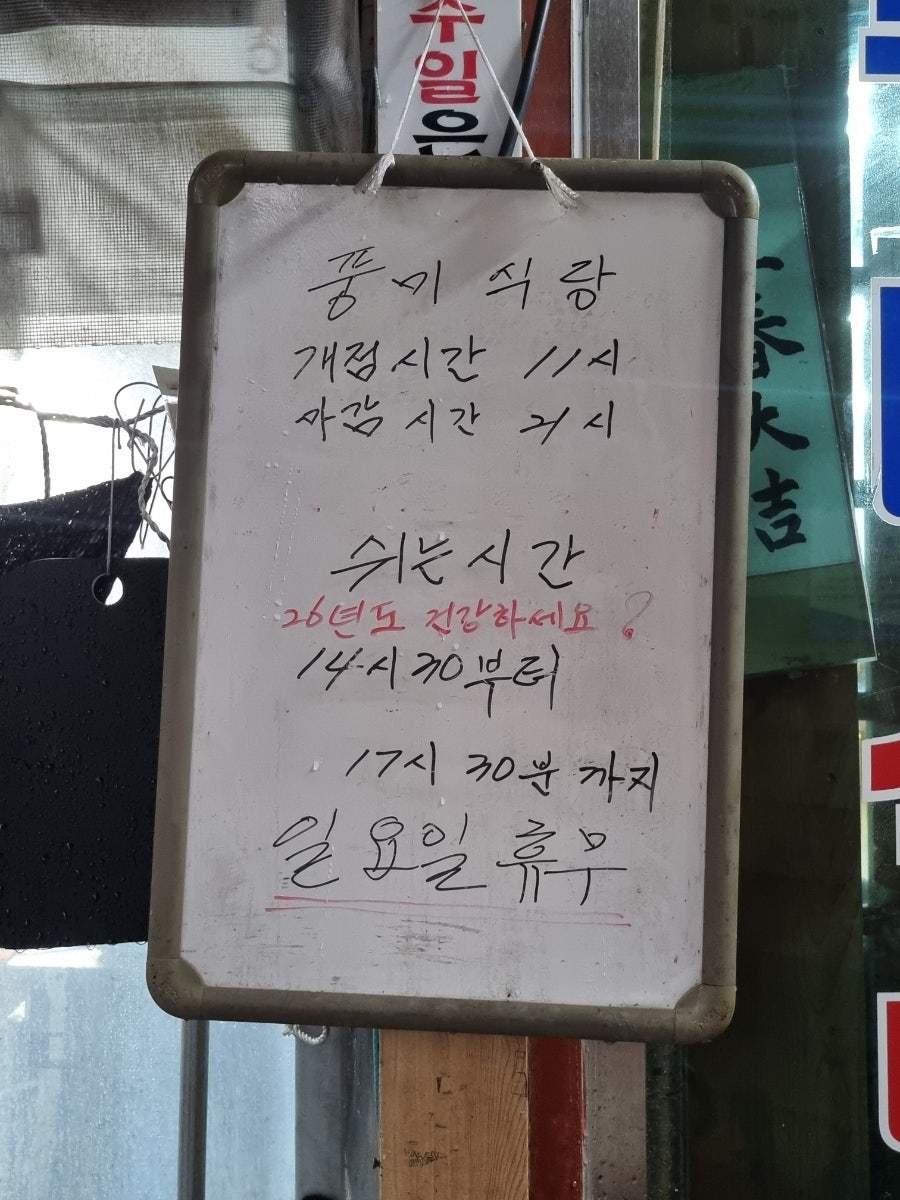 수일은
풍미 식당
개점시간 11시
마감 시간 21시
쉬는시간
26년도 건강하세요?
14시 30부터
17시 30분 까지
일요일 휴무
春大吉